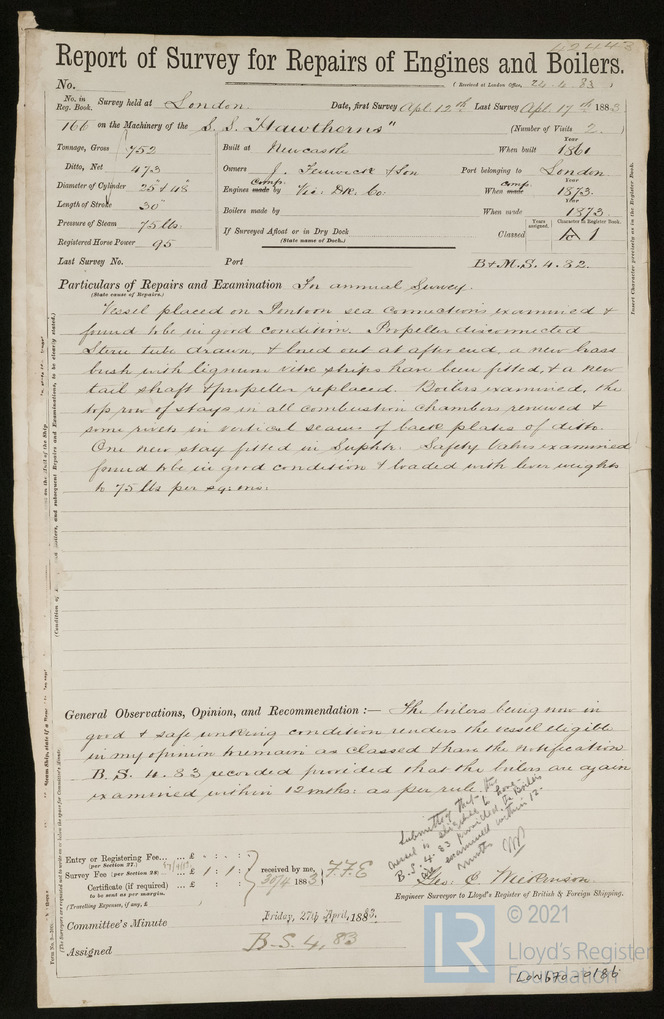 42443
Report of Survey for Repairs of Engines and Boilers.
No. (Received at London Office, 24.4.83)
No. in Reg. Book. Survey held at London. Date, first Survey Apl. 12th Last Survey Apl. 17th 1883
166 on the Machinery of the S.S. "Hawthorns" (Number of Visits 2.)
Tonnage, Gross 752
Ditto, Net 473
Diameter of Cylinder 25" & 48"
Length of Stroke 30"
Pressure of Steam 75 lbs.
Registered Horse Power 95
Built at Newcastle When built Year 1861
Owners J. Fenwick & Son Port belonging to London
Engines made Comp. by Vic: Dk. Co. When made Comp. Year 1873.
Boilers made by When made Year 1873.
If Surveyed Afloat or in Dry Dock
(State name of Dock.)
Classed Years assigned. Character in Register Book. A 1
Insert Character precisely as in the Register Book.
Last Survey No. Port B&M.S. 4.82.
Particulars of Repairs and Examination For annual Survey.
(State cause of Repairs.)
Vessel placed on Pontoon sea connections examined &
found to be in good condition. Propeller disconnected
Stern tube drawn, & bored out at after end, a new brass
bush with lignum vitae strips have been fitted, & a new
tail shaft & propeller replaced. Boilers examined, the
top row of stays in all combustion chambers renewed &
some rivets in vertical seams of back plates of ditto.
One new stay fitted in Suphtr. Safety Valves examined
found to be in good condition & loaded with lever weights
to 75 lbs per sq: ins:
General Observations, Opinion, and Recommendation :— The boilers being now in
good & safe working condition renders the vessel eligible
in my opinion to remain as classed & have the notification
B.S. 4.83 recorded provided that the boilers are again
examined within 12 mths: as per rule.
Submitted that the
vessel is eligible to have
B.S. 4.83 provided the Boilers
are examined within 12
months
Entry or Registering Fee... ... £ : :
(per Section 27.)
Survey Fee (per Section 28) ... £ 1 : 1 :
Certificate (if required) ... £ : :
to be sent as per margin.
(Travelling Expenses, if any, £
received by me,
30/4 1883
F.F.E
Geo: C. McKinnon
Engineer Surveyor to Lloyd's Register of British & Foreign Shipping.
Committee's Minute Friday, 27th April, 1883.
Assigned B.S. 4,83
© 2021
LR
Lloyd's Register
Foundation
LON670-0186